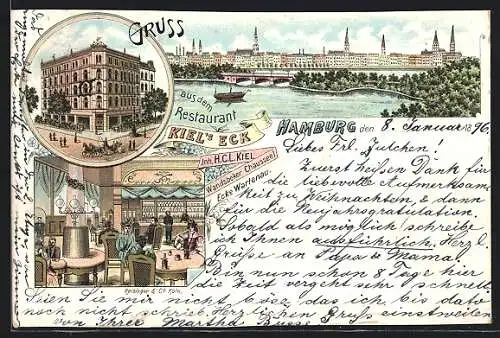 GRUSS
aus dem
Restaurant
KIEL'S ECK
Inh. H.C.L. KIEL
Wandsbecker Chaussee 1
Ecke Wartenau.
HAMBURG den 8. Januar 1896
Liebes Frl. Julchen!
Zuerst heißen Dank für
die liebevolle Aufmerksam-
keit zu Weihnachten, & dann
für die Neujahrsgratulation.
Sobald als möglich schreibe
ich Ihnen ausführlich. Herzl.
Grüße an Papa & Mama.
Bin nun schon 8 Tage hier
die Zeit vergeht sehr schnell.
Seien Sie mir nicht böse, das ich bis dato
noch nicht schrieb. Herzlichen Gruß einstweilen
von Ihrer Martha Busse